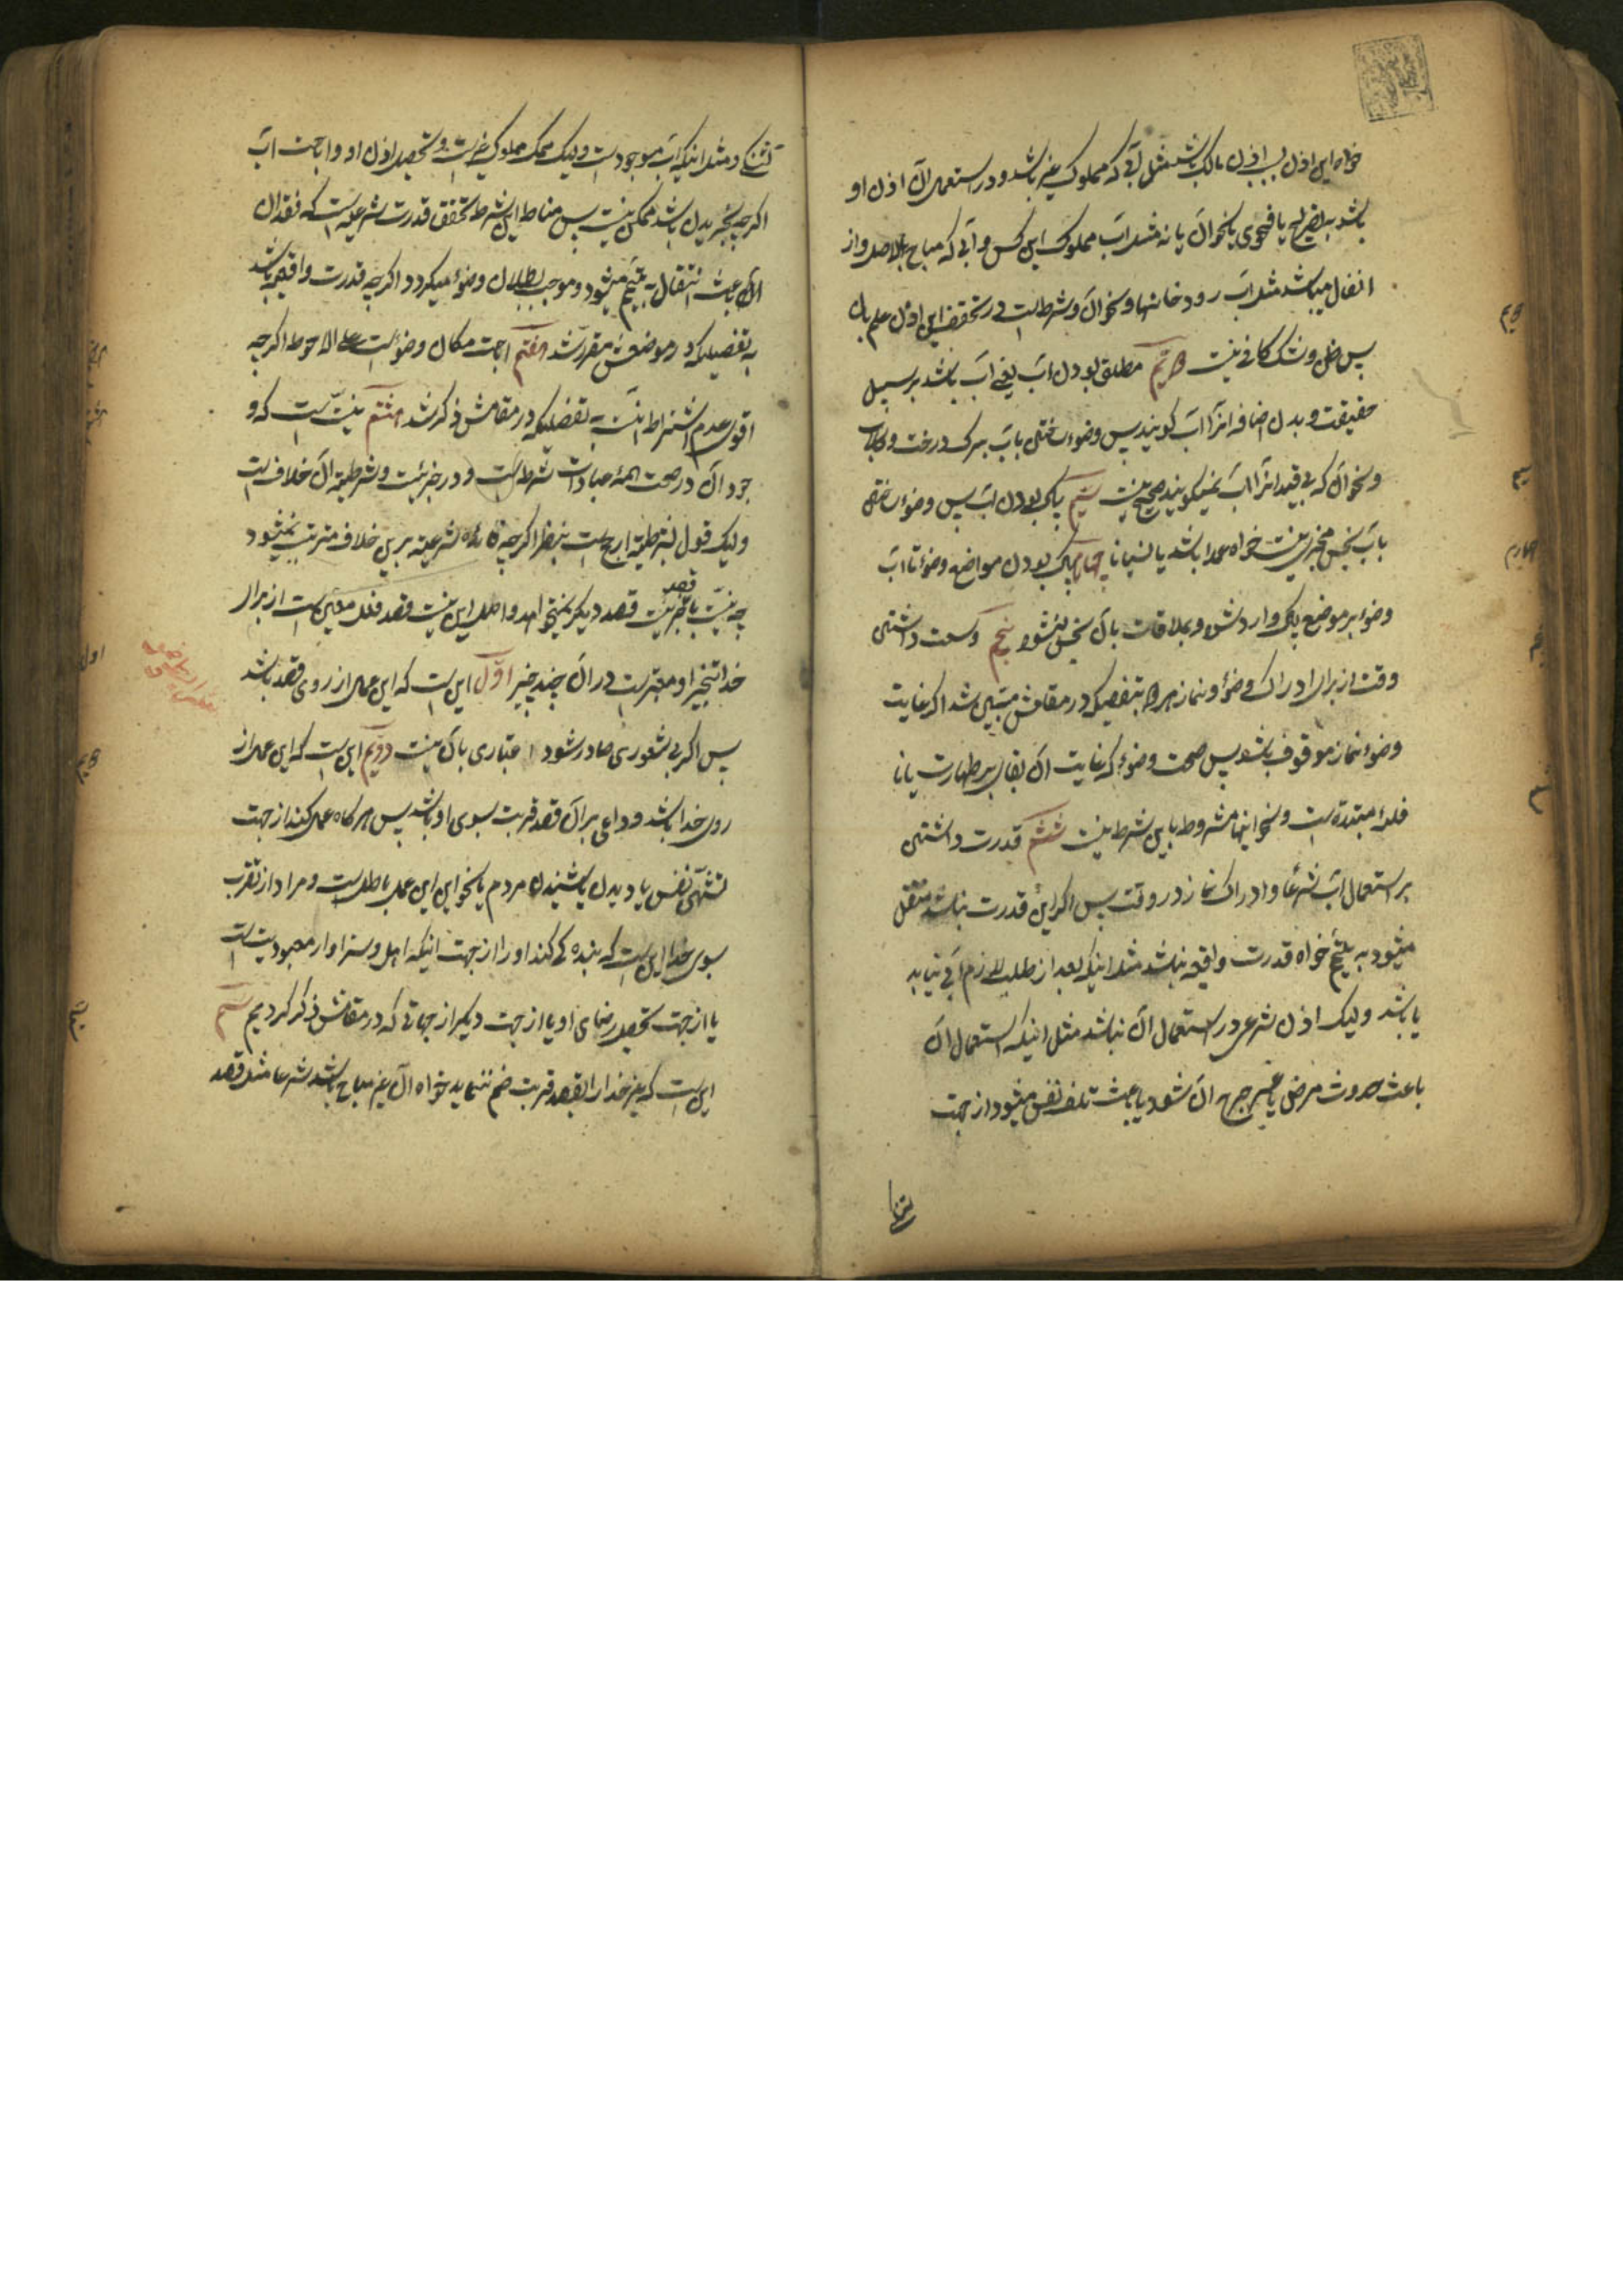 خواه این اذن بسبب اذن مالک باشد مثل آبی که مملوک غیر باشد و در استعمال آن اذن او
باشد بصریح یا فحوی یا نحو آن یا نه مثل آب مملوک این کس و آبی که مباح بالاصل و از
انفال میباشد مثل آب رودخانها و نحو آن و شرطست در تحقق این اذن علم بآن
پس ظن و شک کافی نیست دویم مطلق بودن آب یعنی آب باشد بر سبیل
حقیقت و بدون اضافه آنرا آب کویند پس وضوء ساختن بآب برک درخت و کلاب
و نحو آن که بی قید آنرا آب نمیکویند صحیح نیست سیم پاک بودن آب پس وضوء ساختن
بآب نجس مجزی نیست خواه عمدا باشد یا نسیانا چهارم پاک بودن مواضع وضوء تا آب
وضوء بر موضع پاک وارد شود و بملاقات بآن نجس نشود پنجم وسعت داشتن
وقت از برای ادراک وضوء و نماز هر دو بتفصیلیکه در مقامش مبین شد اکر غایت
وضوء نماز موقوف باشد پس صحت وضوء که غایت آن بقاء بر طهارت یا
مبتدئه است و نحو اینها مشروط باین شرط نیست ششم قدرت داشتن
بر استعمال آب شرعا و ادراک نماز در وقت پس اکر این قدرت نباشد منتقل
میشود به تیمم خواه قدرت واقعیه نباشد مثل اینکه بعد از طلب لازم آبی نیابد
یا باشد ولیک اذن شرعی در استعمال آن نباشد مثل اینکه استعمال آن
باعث حدوث مرض یا عسر حرج آن شود یا باعث تلف نفس میشود از جهت
تشنکی
تشنکی و مثل اینکه آب موجود است ولیک مملوک غیر است و تحصیل اذن او و اباحت آب
اکرچه بخریدن باشد ممکن نیست پس مناط این شرط تحقق قدرت شرعیه است که فقدان
آن باعث انتقال به تیمم میشود و موجب بطلان وضوء میکردد اکرچه قدرت واقعیه باشد
به تفصیلیکه در موضعش مقرر شد هفتم اباحت مکان وضوء است علی الاحوط اکرچه
اقوی عدم اشتراط آنست به تفصیلیکه در مقامش ذکر شد هشتم نیت است که و
جود آن در صحت همه عبادات شرط است و در جزئیت و شرطیة آن خلاف است
ولیک قول بشرطیة ارجح است بنظر اکرچه فائده شرعیه برین خلاف مترتب نمیشود
چه نیت یا جزئیت قصد دیکر نمیخواهد و اصل این نیت قصد فعل معین است از برای
قصد
خدا و معتبر است در آن چند چیز اوّل این است که این عمل از روی قصد باشد
پس اکر بی شعوری صادر شود اعتباری بآن نیست دویم این است که این عمل از
روی خدا باشد و داعی بر آن قصد قربت بسوی او باشد پس هرکاه عمل کند از جهت
تشهّی نفس یا دیدن یا شنیدن مردم یا نحو این این عمل باطل است و مراد از تقرب
بسوی خدا این است که بنده کی کند او را از جهت اینکه اهل و سزاوار معبودیت است
یا از جهت تحصیل رضای او یا از جهت دیکر از جهاتی که در مقامش ذکر کردیم سیم
این است که غیر خدا را بقصد قربت ضم ننماید خواه آن غیر مباح باشد شرعا مثل قصد
دویم
سیم
چهارم
پنجم
ششم
هفتم
هشتم
اول
دویم
سیم